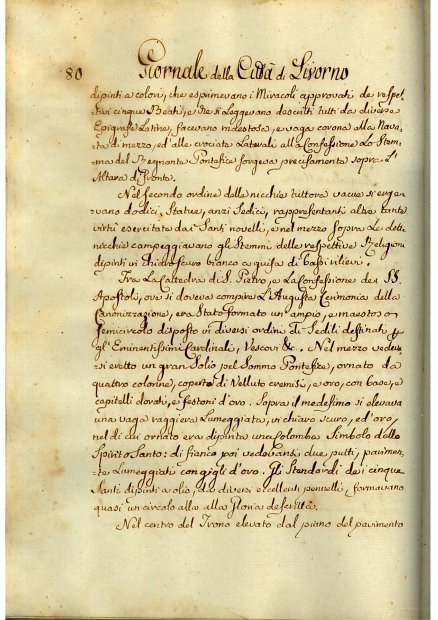 80 Giornale della Città di Livorno
dipinti a colori, che esprimevano i Miracoli approvati de respet-
tivi cinque Beati, e che si leggevano descritti tutti da diverse
Epigrafe Latine, facevano maestosa, e vaga corona alla Nava-
ta di mezzo, ed alle crociate Laterali alla Confessione. Lo Stem-
ma del Regnante Pontefice sorgeva precisamente sopra l'
Altare di fronte.
Nel secondo ordine delle nicchie tuttora vacue si erge-
vano dodici Statue, anzi Sedici, rappresentanti altre tante
virtù esercitate dai Santi novelli, e nel mezzo sopra Le dette
nicchie campeggiavano gli Stemmi delle respettive Religioni
dipinti in chiaro scuro bianco a guisa di bassi rilievi.
Tra La Cattedra di S. Pietro, e La Confessione dei SS.
Apostoli, ove si doveva compire L'Augusta Cerimonia della
Canonizzazione, era Stato formato un ampio, e maestoso
Semicircolo disposto in diversi ordini di Sedili destinati p
gl'Eminentissimi Cardinali, Vescovi &c. Nel mezzo vede
si eretto un gran Solio pel Sommo Pontefice, ornato da
quattro colonne, coperto di Velluto cremisi, e oro, con base, e
capitelli dorati, e festoni d'oro. Sopra il medesimo si elevava
una vaga raggiera Lumeggiata, di chiaro scuro, ed'oro,
nel di cui ornato era dipinta una Colomba Simbolo dello
Spirito Santo: di fianco poi vedevansi due putti, parimen-
te Lumeggiati con gigli d'oro. Gli Stendardi dei cinque
Santi dipinti a olio, da diversi eccellenti pennelli, formavano
quasi un circolo alla alla Gloria descritta.
Nel centro del Trono elevato dal piano del pavimento